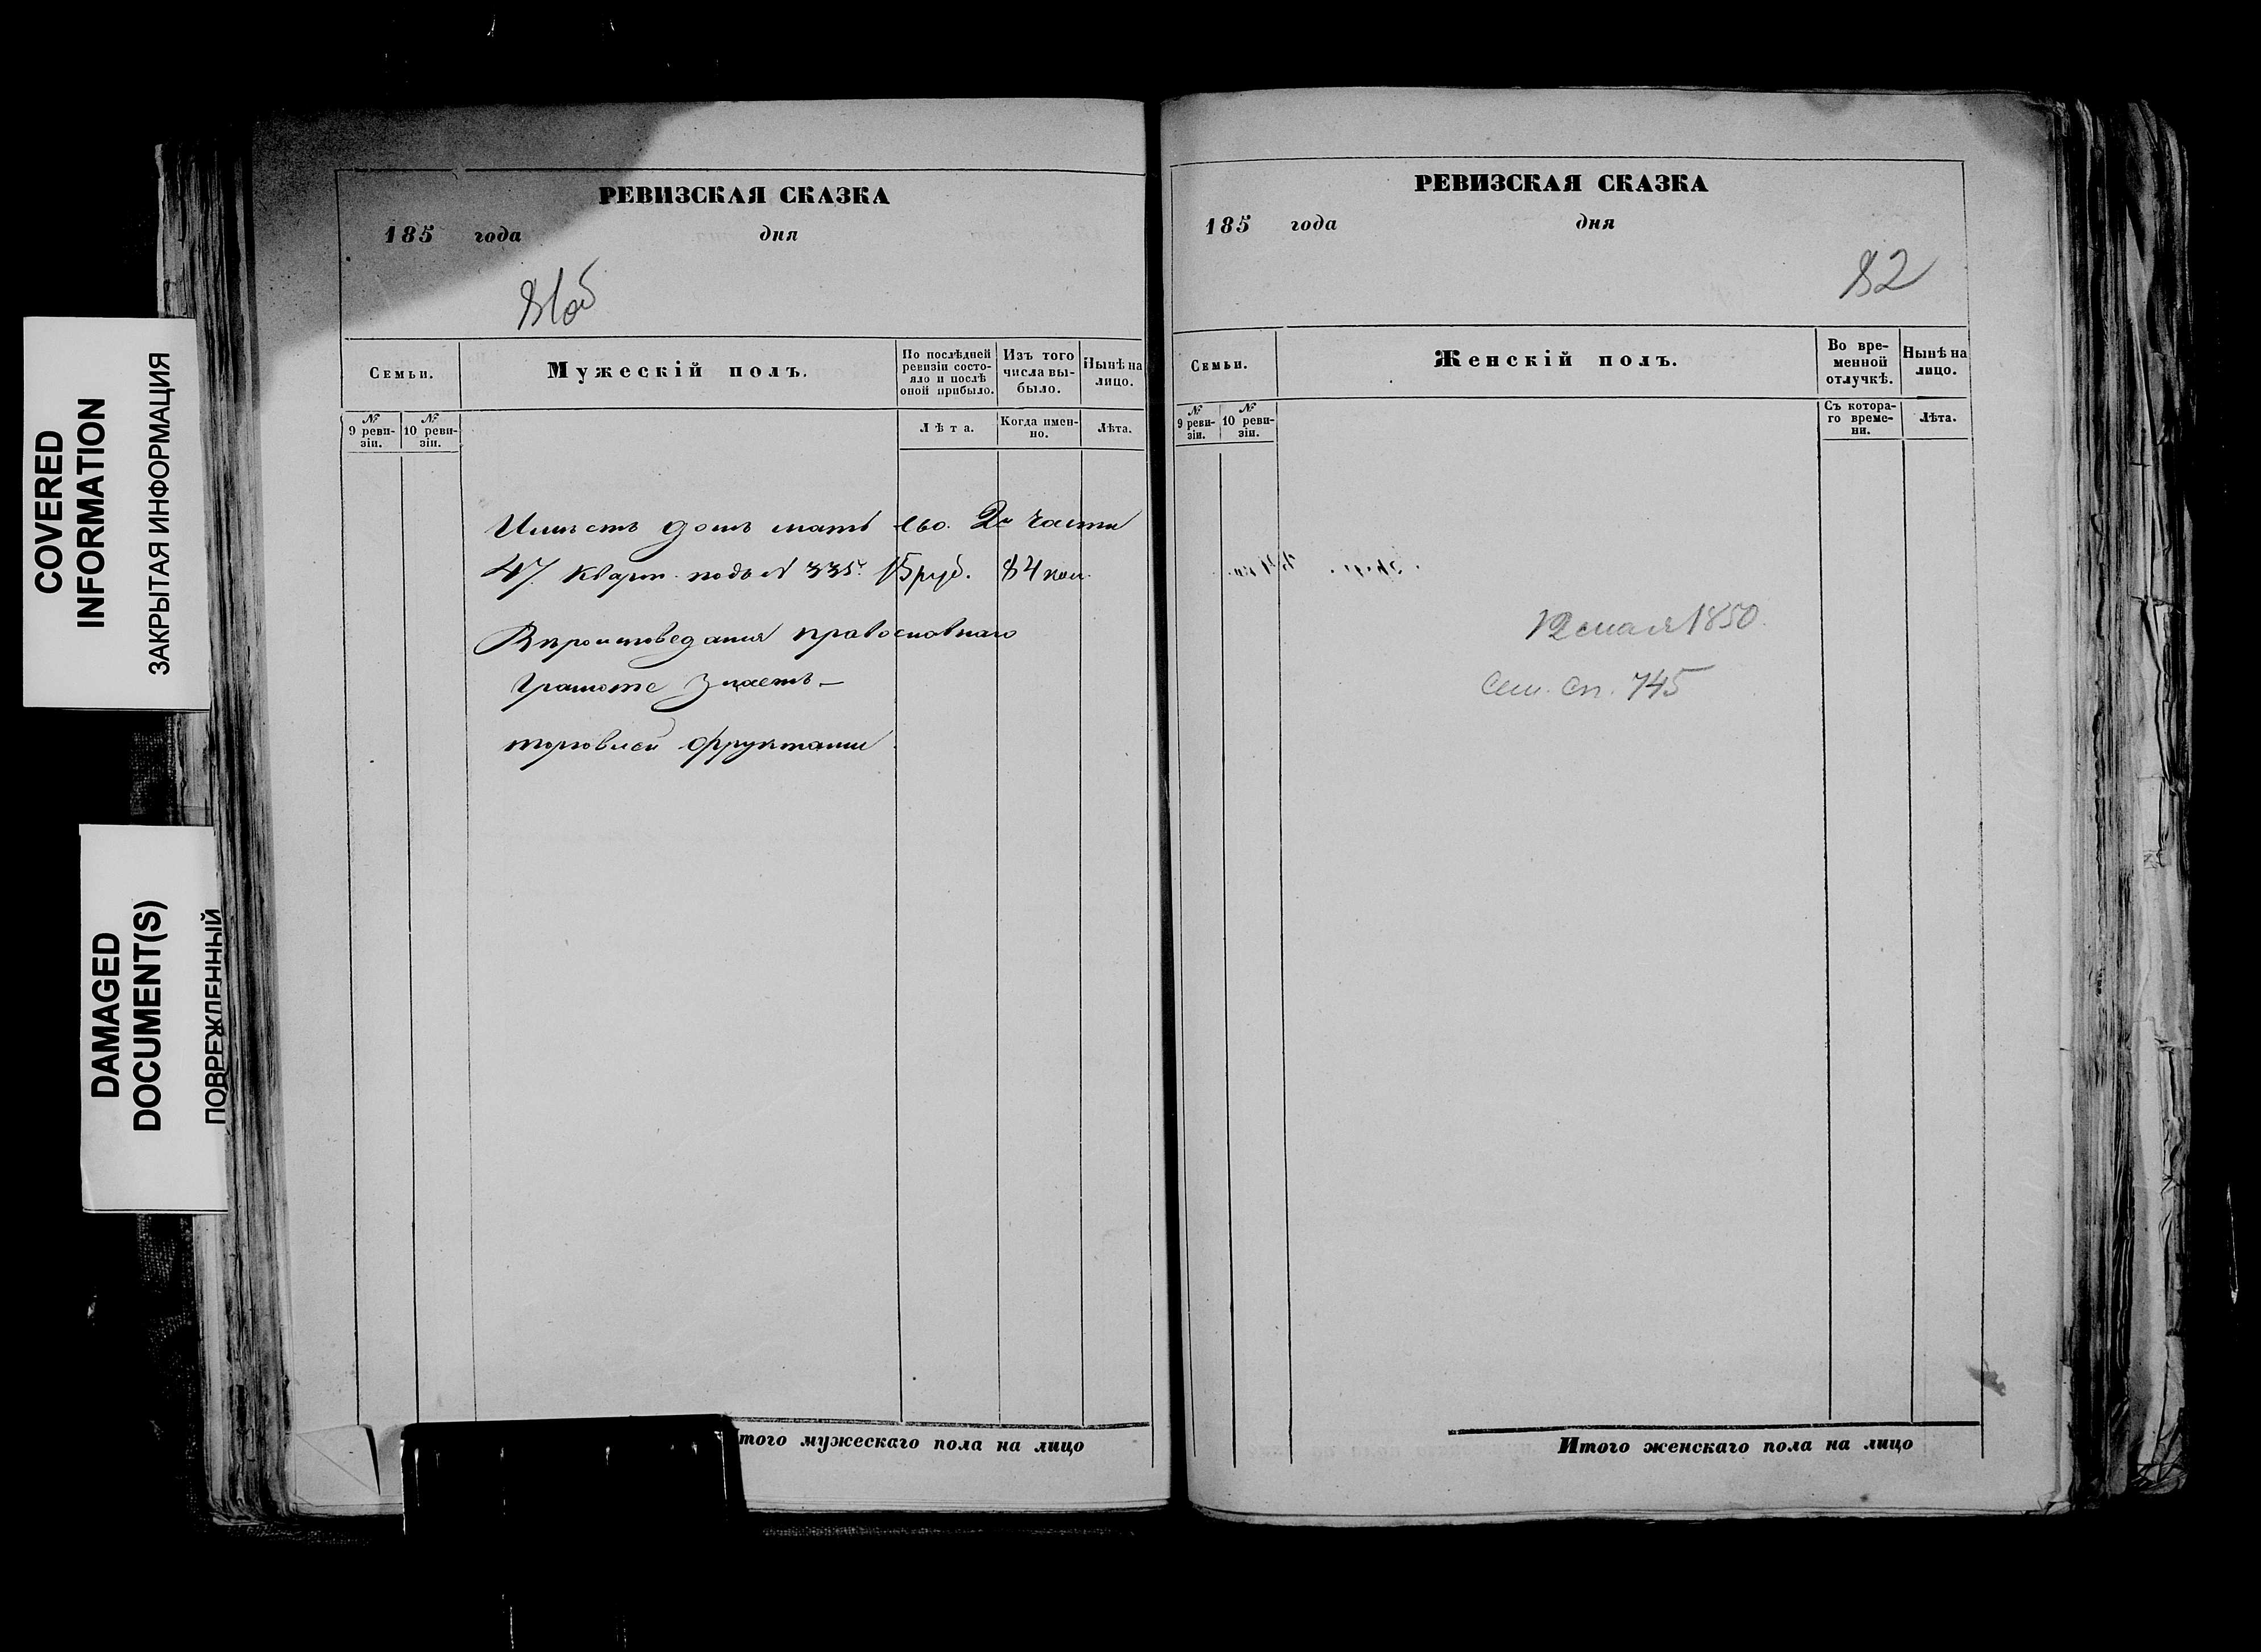 COVERED
INFORMATION
ЗАКРЫТАЯ ИНФОРМАЦИЯ
DAMAGED
DOCUMENT(S)
ПОВРЕЖДЕННЫЙ
РЕВИЗСКАЯ СКАЗКА
185 года дня
81об
Семьи.
Мужескій полъ.
По послѣдней ревизіи состояло и послѣ оной прибыло.
Изъ того числа выбыло.
Нынѣ на лицо.
№ 9 реви-
зіи.
№ 10 реви-
зіи.
Лѣта.
Когда имен-
но.
Лѣта.
Имѣетъ домъ мать его. 2й части
47. Кварт. подъ N 335. 15 руб. 84 коп.
Вѣроисповеданія православнаго
Грамоте знаетъ —
торговлей фруктами
Итого мужескаго пола на лицо
РЕВИЗСКАЯ СКАЗКА
185 года дня
82
Семьи.
Женскій полъ.
Во вре-
менной
отлучкѣ.
Нынѣ на
лицо.
№
9 реви-
зіи.
№
10 реви-
зіи.
Съ котора-
го време-
ни.
Лѣта.
12 мая 1850.
Сем. сп. 745
Итого женскаго пола на лицо